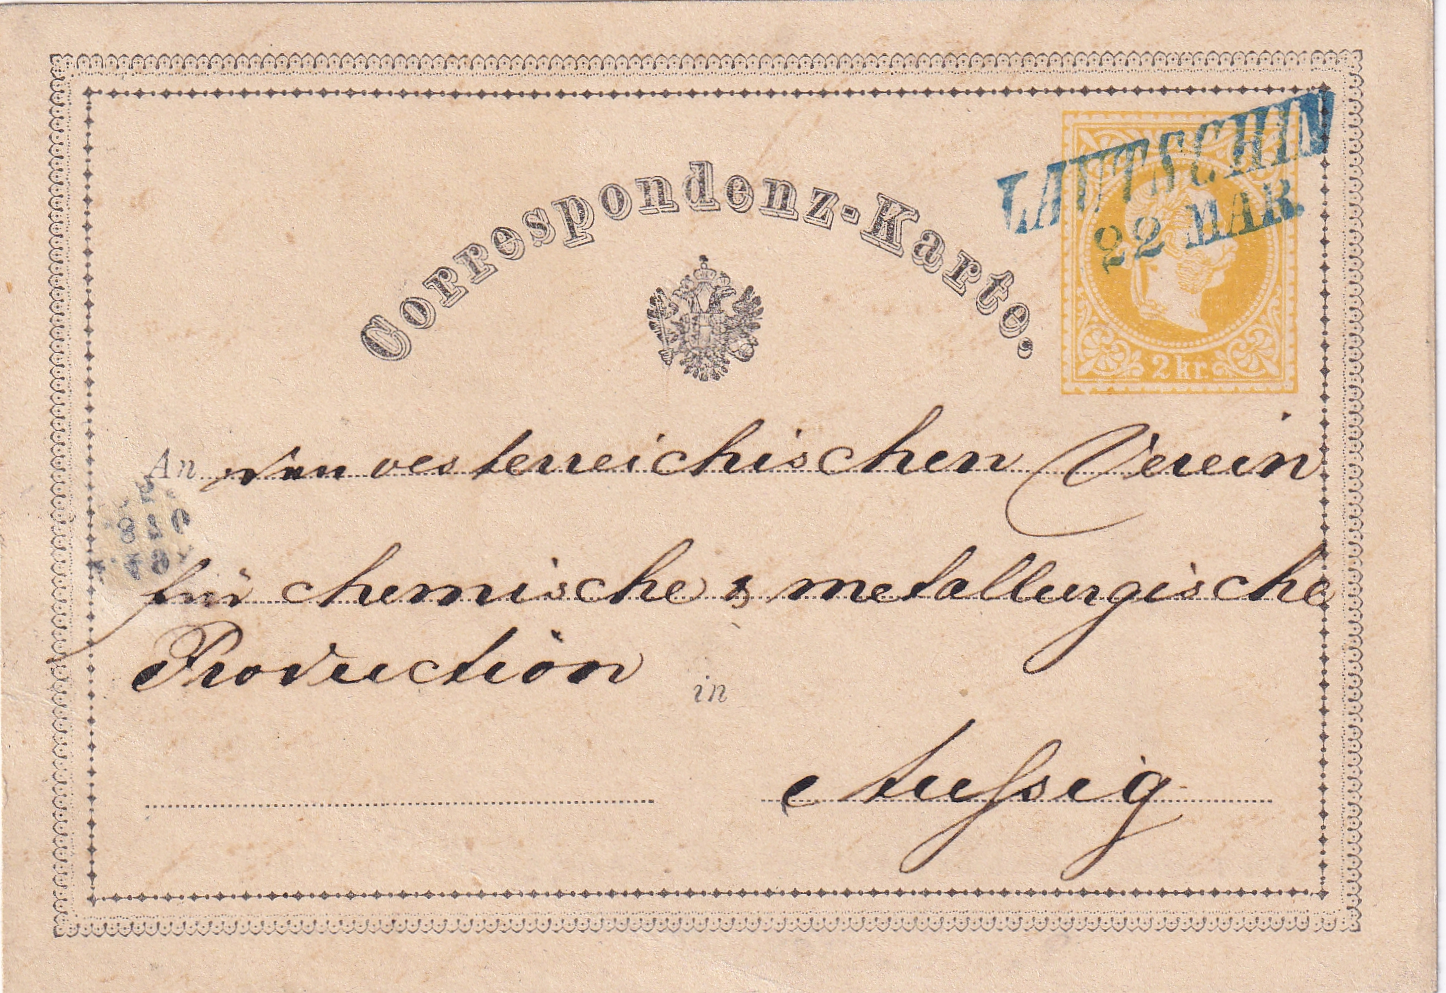 Correspondenz-Karte.
LAUTSCHIN
22 MAR.
2 kr.
An den oesterreichischen Verein
für chemische & metallurgische
Production
in
Aussig